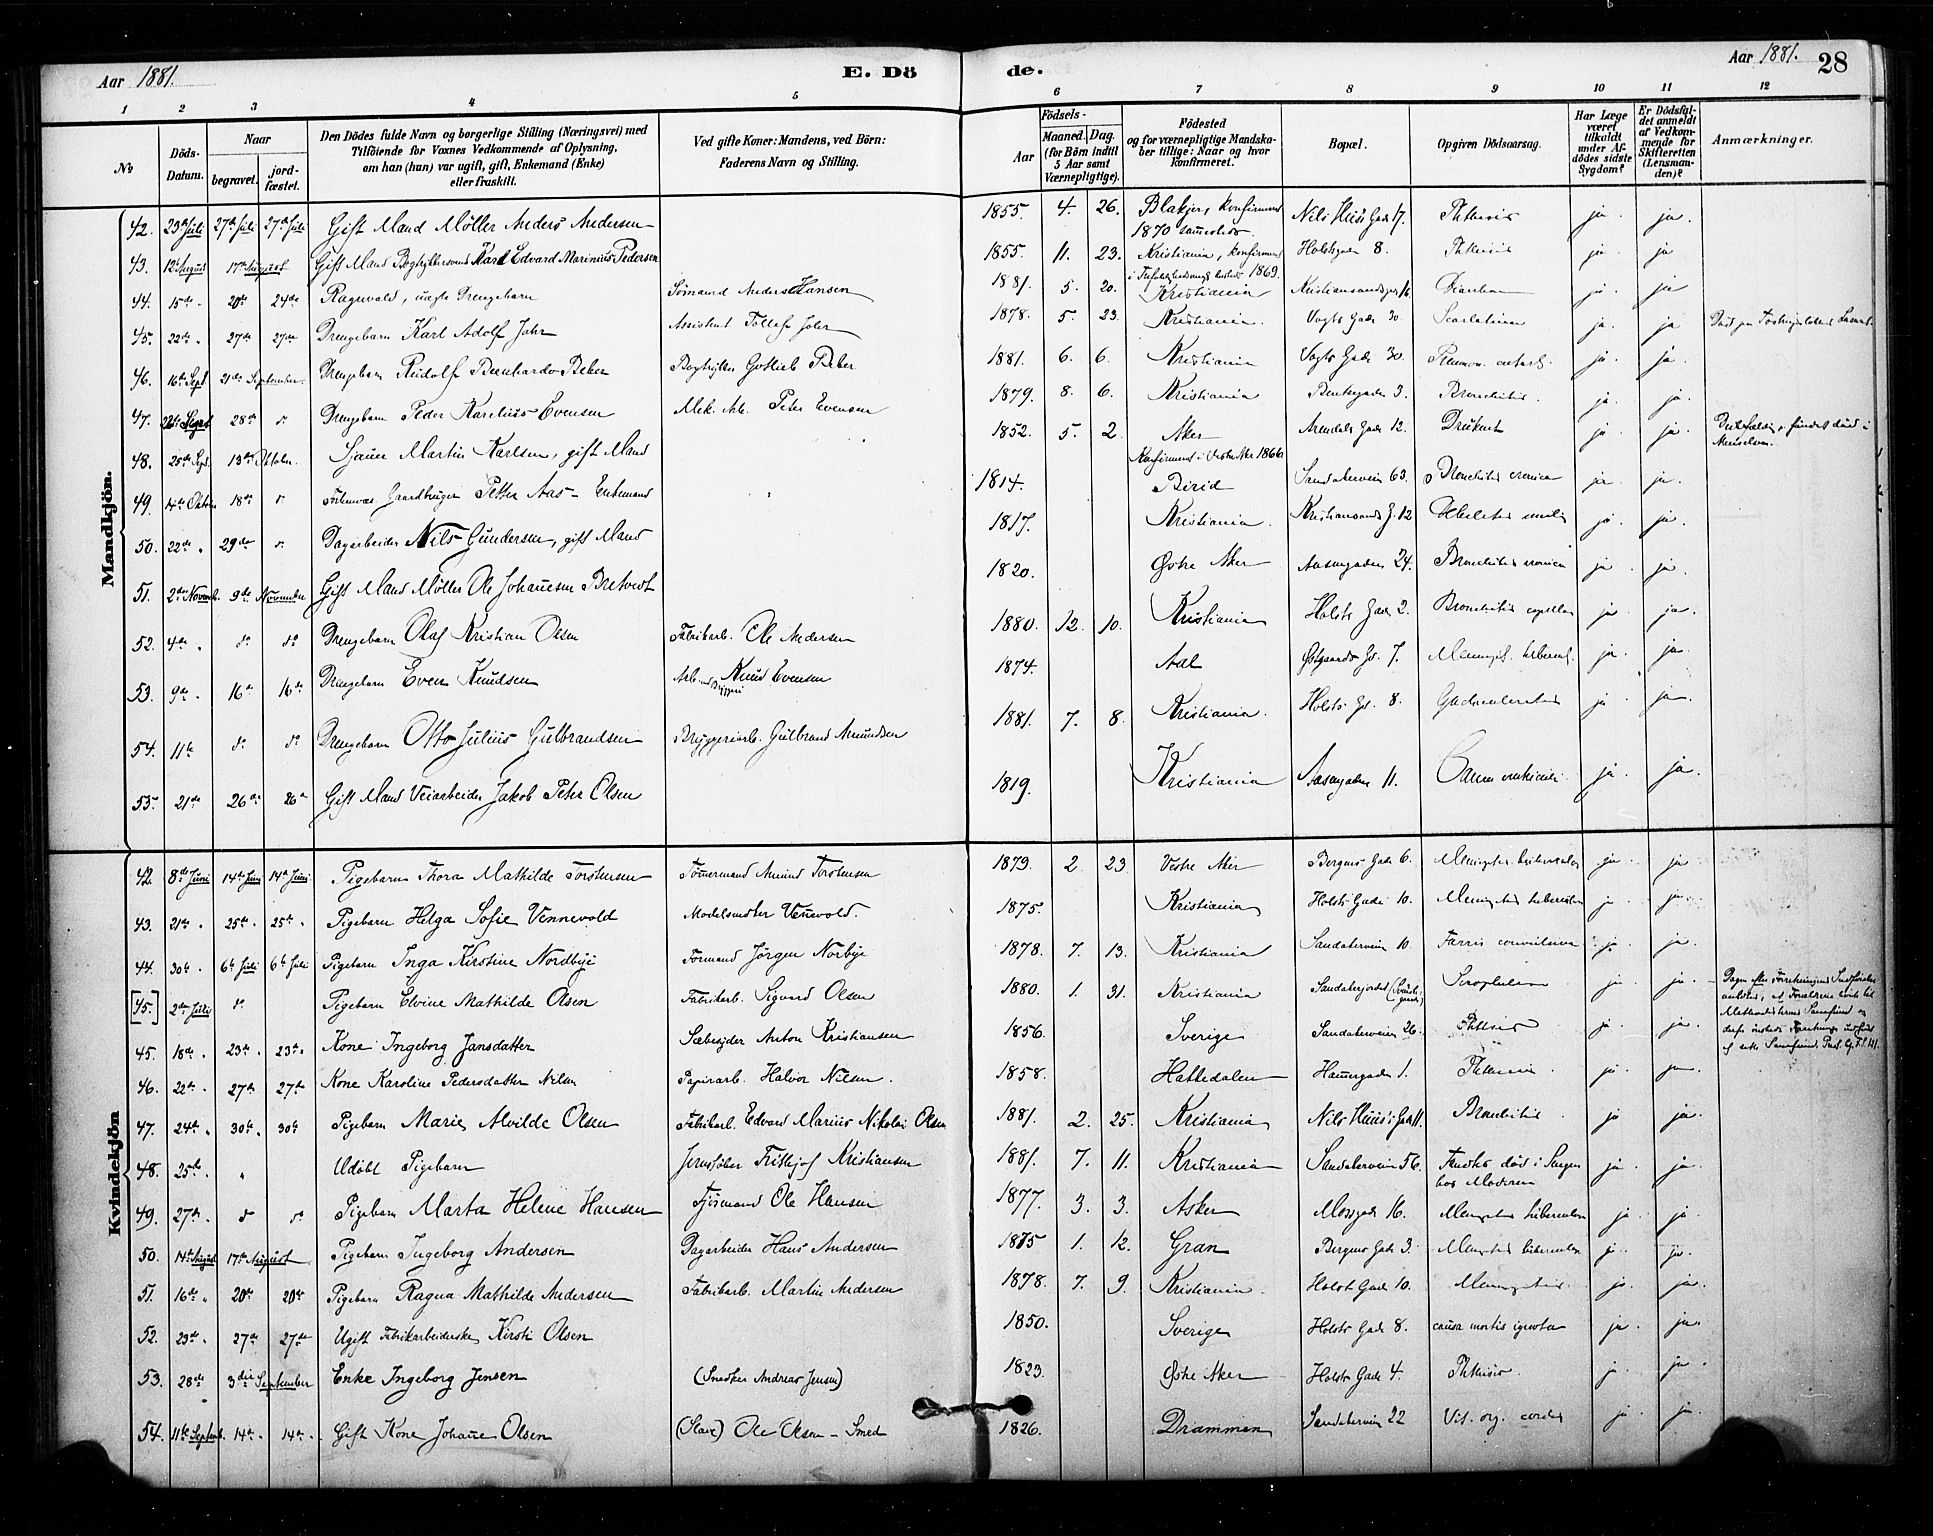 Aar 1881.
E. Dö de.
Aar 1881. 28
1 2 3 4 5 6 7 8 9 10 11 12
No
Döds-Datum.
Naar
begravet.
jord-fæstet.
Den Dödes fulde Navn og borgerlige Stilling (Næringsvei) med
Tilföiende for Voxnes Vedkommende af Oplysning,
om han (hun) var ugift, gift, Enkemand (Enke)
eller fraskilt.
Ved gifte Koner: Mandens, ved Börn:
Faderens Navn og Stilling.
Födsels-
Aar
Maaned. Dag.
(for Börn indtil
5 Aar samt
Værnepligtige).
Födested
og for værnepligtige Mandska-
ber tillige: Naar og hvor
konfirmeret.
Bopæl.
Opgiven Dödsaarsag.
Har Læge
været
tilkaldt
under Af-
dödes sidste
Sygdom?
Er Dödsfal-
det anmeldt
af Vedkom-
mende for
Skifteretten
(Lensman-
den)?
Anmærkninger.
Mandkjön.
42. 23de Juli 27de Juli 27de Juli Gift Mand Møller Anders Andersen 1855 4. 26. Blakjer, konfirmeret 1870 sammesteds. Nils Huus' Gade 17. Phthisis ja ja.
43. 12te August 17de August Gift Mand Bogtrykkersvend Karl Edvard Marinius Pedersen 1855. 11. 23. Kristiania, konfirmeret i 1869. Holstsgade 8. Phthisis ja ja
44. 15de 20de 24de Ragnvald, uægte Drengebarn Sømand Anders Hansen 1881. 5. 20. Kristiania Kristiansandsgade 16. Diarrhoea ja. ja
45. 22de 27de 27de Drengebarn Karl Adolf Jahr Assistent Tollef Jahr 1878. 5. 23. Kristiania. Vogts Gade 30. Scarlatina ja. ja
46. 16de Sept. 21de September. Drengebarn Rudolf Bernhardo Beker Bogtrykker Gottlieb Beker 1881. 6. 6. Kristiania Vogts Gade 30. Pneumon. catarrh. ja. ja.
47. 22de Sept. 28de do Drengebarn Peder Karelius Evensen Mek. Arb. Peter Evensen 1879. 8. 6. Kristiania Bentsegade 3. Bronchitis. ja. ja.
48. 25de Sept. 13de Oktober. Sjauer Martin Karlsen, gift Mand 1852. 5. 2. Aker Konfirmeret i Vestre Aker 1866. Arendals Gade 12. Druknet ja ja. fundet død i
49. 14de Oktober 18de do Gaardbruger Petter Aas - Enkemand 1814. Birid Sandakerveien 63. Bronchitis cronica ja ja.
50. 22de 29de do Dagarbeider Nils Gundersen, gift Mand 1817. Kristiania. Kristiansands G. 12 Debilitas senilis ja. ja.
51. 2den Novemb. 9de November Gift Mand Møller Ole Johannesen Bretvedt 1820. Østre Aker Aasengaden 24. Bronchitis cronica ja ja.
52. 4de do do Drengebarn Olaf Kristian Olsen Fabrikarb. Ole Andersen 1880. 12. 10. Kristiania Holsts Gade 2. Bronchitis capillar. ja ja.
53. 9de 16de 16de Drengebarn Even Knudsen Arb. Knud Evensen 1874. Aal Østgaards Gd. 7. Meningit. tubercul. ja. ja.
54. 11te do do Drengebarn Otto Julius Gulbrandsen Bryggeriarb. Gulbrand Amundsen 1881. 7. 8. Kristiania. Holsts Gd. 8. ja ja
55. 21de 26de 26de Gift Mand Veiarbeider Jakob Peter Olsen 1819. Kristiania Aasengaden 11. Cancer ventriculi. ja. ja.
Kvindekjön
42. 8de Juni 14de Juni 14de Juni Pigebarn Thora Mathilde Torstensen Tømmermand Amund Torstensen 1879. 2 23 Vestre Aker Bergens Gade 6. Meningitis tuberculos ja. ja
43. 21de 25de 25de Pigebarn Helga Sofie Vennevold Modelsnedker Vennevold. 1875. Kristiania Holsts Gade 10. Meningitis tuberculos ja ja.
44. 30te 6te Juli 6te Juli Pigebarn Inga Kirstine Nordbye Formand Jørgen Norbye 1878. 7. 13. Kristiania Sandakerveien 10. Tussis convulsiva ja. ja.
[45.] 2den Juli do Pigebarn Elvine Mathilde Olsen Fabrikarb. Sigvard Olsen 1880. 1. 31. Kristiania Sandakerjordet Scrophulosis ja. ja. Dagen efter Forretningens Indførelse at Forældrene hørte til Methodisternes Samfund
45. 18de 23de 23de Kone Ingeborg Jansdatter Sæbesyder Anton Kristiansen 1856. Sverige Sandakerveien 26. Phthisis ja. ja.
46. 22de 27de 27de Kone Karoline Pedersdatter Nilsen Papirarb. Halvor Nilsen. 1858. Hattedalen Hammergaden 1. Phthisis. ja. ja
47. 24de 30te 30te Pigebarn Marie Alvilde Olsen Fabrikarb. Edvard Marius Nikolai Olsen 1881. 2. 25. Kristiania Nils Huus' Gade 11. Bronchitis ja ja.
48. 25de " Udøbt Pigebarn Jernstøber Frithjof Kristiansen 1881. 7. 11. Kristiania Sandakerveien 56. Fandtes død i Sengen hos Moderen ja. ja.
49. 27de do do Pigebarn Marta Helene Hansen Ole Hansen 1877. 3. 3. Asker Mossgade 16. Meningitis tuberculos ja. ja.
50. 14de August 17de August Pigebarn Ingeborg Andersen Dagarbeider Hans Andersen 1875 1. 12. Gran Bergens Gade 3. Meningitis tuberculos ja. ja.
51. 16de 20de 20de Pigebarn Ragna Mathilde Andersen Fabrikarb. Martin Andersen 1878. 7. 9. Kristiania. Holst Gade 10. Meningitis. ja. ja.
52. 23de 27de 27de Ugift Fabrikarbeiderske Kirsti Olsen 1850. Sverige Holsts Gade 8. causa mortis ignota ja ja.
53. 28de 3die September Enke Ingeborg Jensen (Snedker Andreas Jensen) 1823. Østre Aker Holsts Gade 4. Phthisis. ja. ja
54. 11te Septemb. 14de 14de Gift Kone Johanne Olsen (Slave) Ole Olsen - Smed 1826. Drammen Sandakerveien 22 Vit. org. cordis ja. ja.